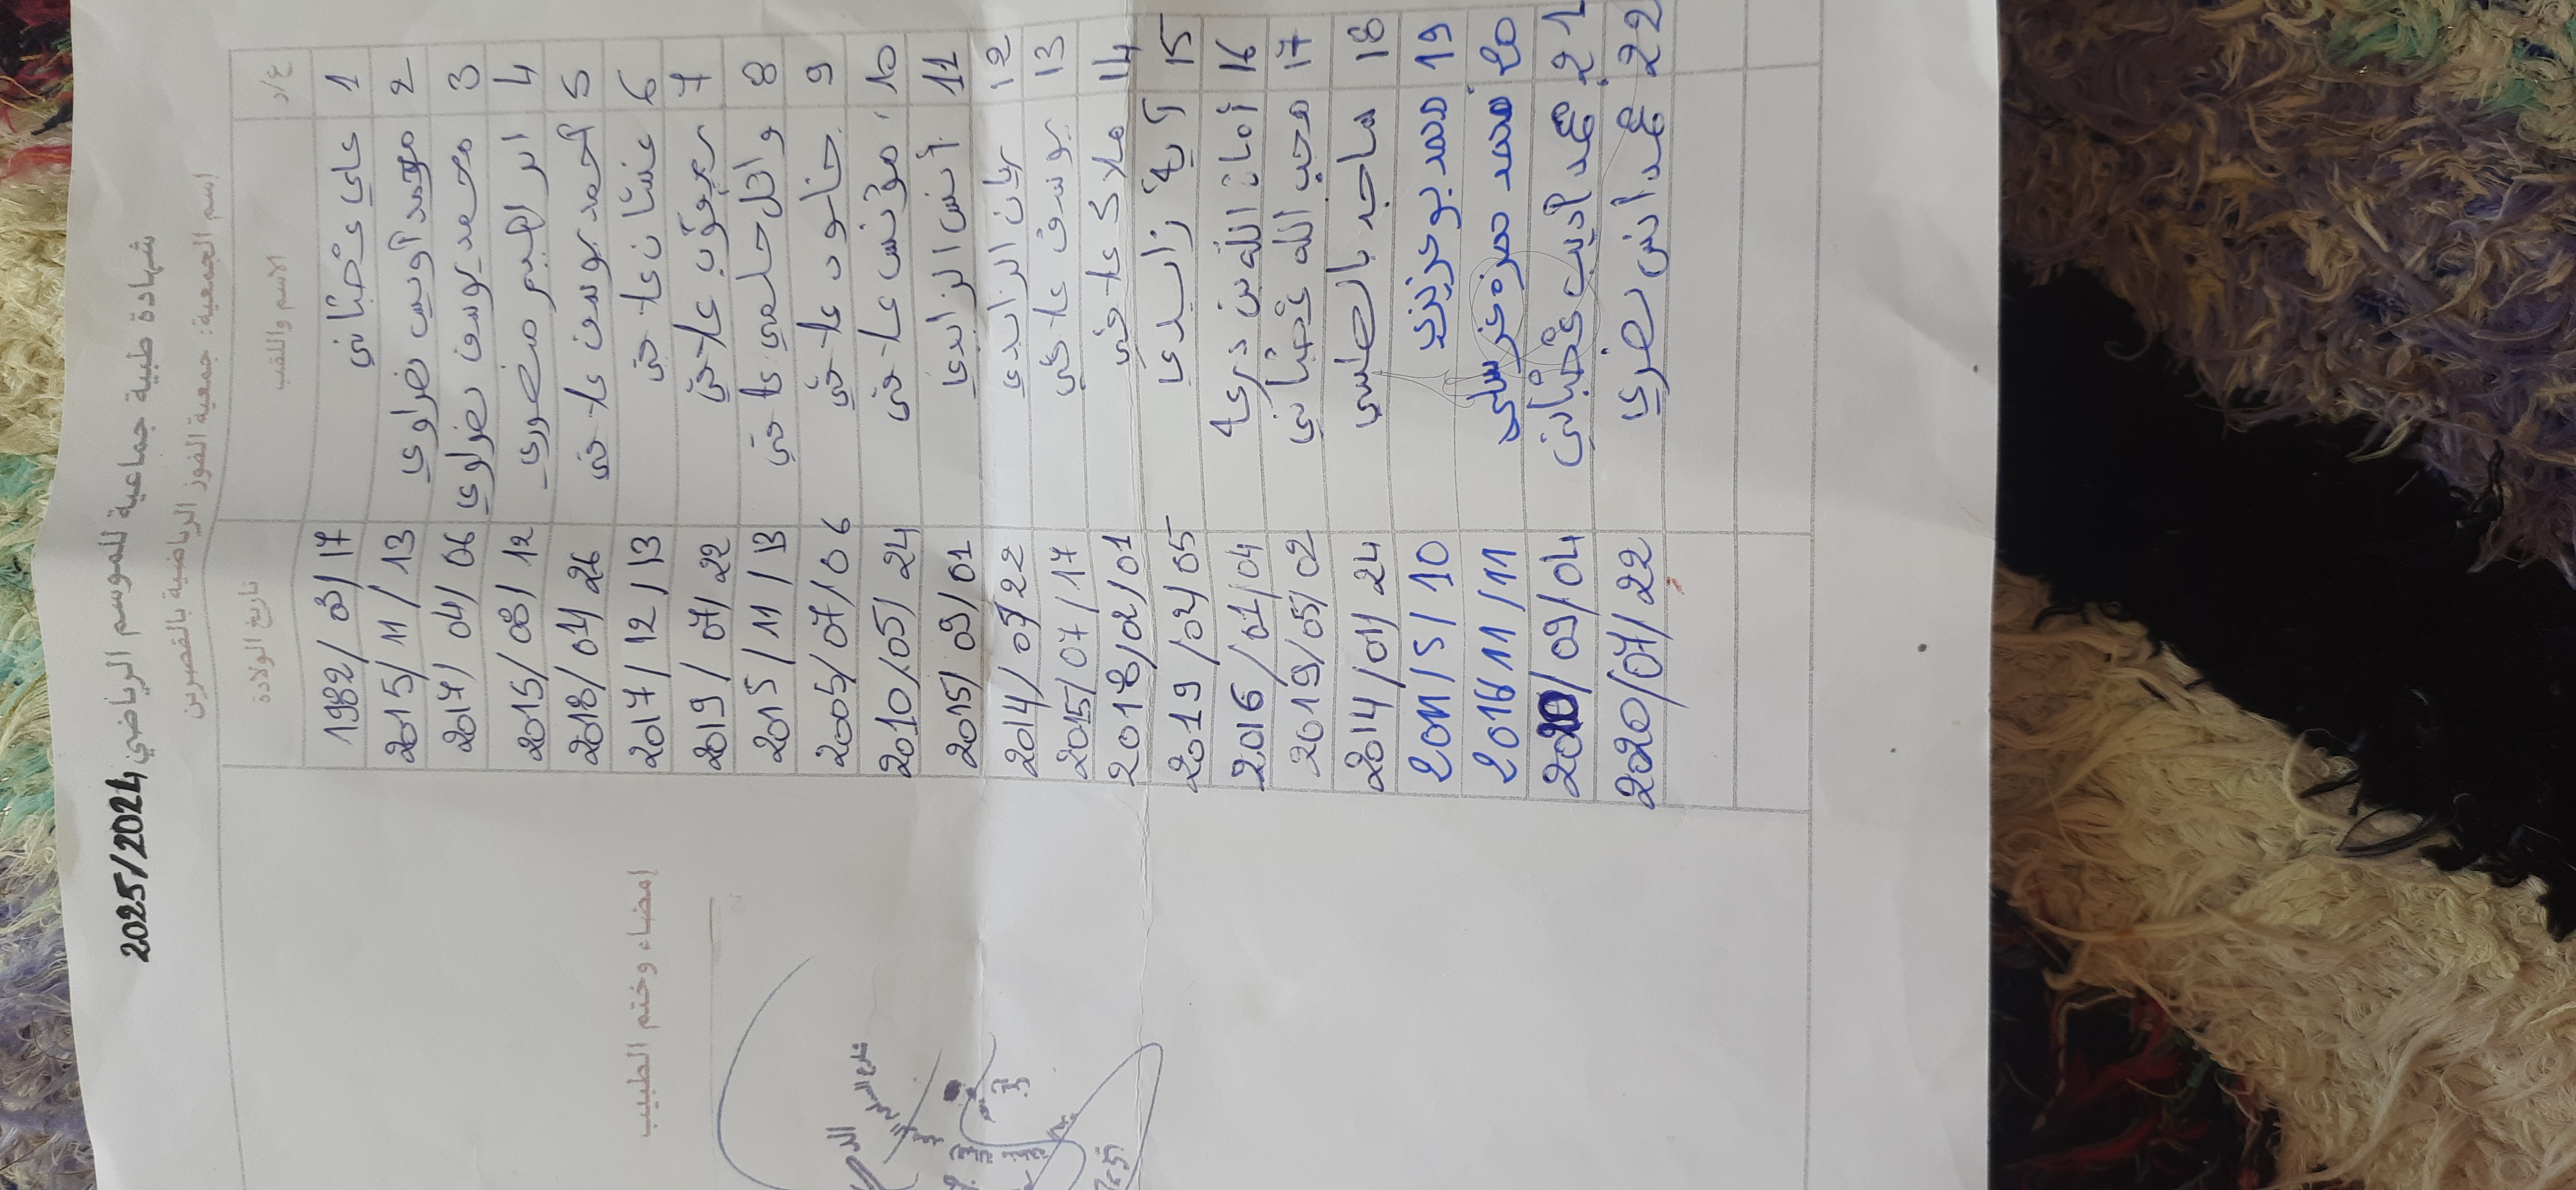 شهادة طبية جماعية للموسم الرياضي 2025/2024
اسم الجمعية: جمعية الفوز الرياضية بالقصرين
ع/د الاسم واللقب تاريخ الولادة
1 علي عْصباني 1982/03/17
2 محمد أويس نصراوي 2015/11/13
3 محمد يوسف نصراوي 2017/04/06
4 ابراهيم منصوري 2015/08/12
5 أحمد يوسف علاقي 2018/04/26
6 غسان علاقي 2017/12/13
7 يعقوب علاقي 2019/07/22
8 وائل حلمي علاقي 2015/11/13
9 علاقي 2005/07/06
10 مؤنس علاقي 2010/05/24
11 أنس الزايدي 2015/09/01
12 ريان الزايدي 2014/07/22
13 يوسف علاقي 2015/07/17
14 ملاك علاقي 2018/02/01
15 آية زايدي 2019/04/05
16 أمان الله بن 2016/01/04
17 محب الله عْصباني 2019/05/02
18 ساجد بالطلسي 2014/01/24
19 محمد بوعزيزي 2011/5/10
20 محمد حمزة غرسلي 2016/11/11
21 محمد أديب عْصباني 2020/09/04
22 محمد أنس نصري 2020/07/22
إمضاء وختم الطبيب